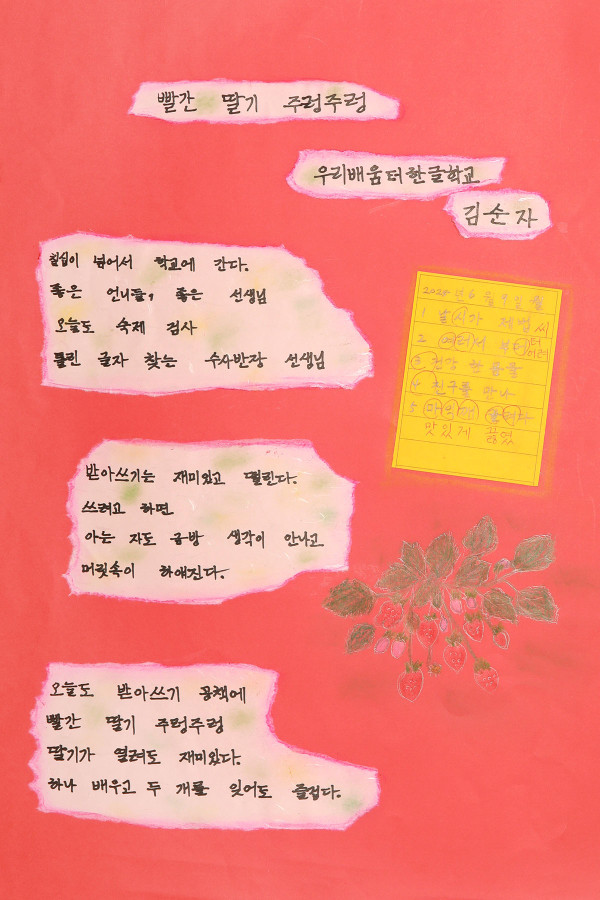 빨간 딸기 주렁주렁
우리배움터한글학교
김순자
칠십이 넘어서 학교에 간다.
좋은 언니들, 좋은 선생님
오늘도 숙제 검사
틀린 글자 찾는 수사반장 선생님
받아쓰기는 재미있고 떨린다.
쓰려고 하면
아는 자도 금방 생각이 안나고
머릿속이 하얘진다.
오늘도 받아쓰기 공책에
빨간 딸기 주렁주렁
딸기가 열려도 재미있다.
하나 배우고 두 개를 잊어도 즐겁다.
1 날씨가 제법 씨
2
3 건강
4 친구를 만나
5
맛있게 끓였